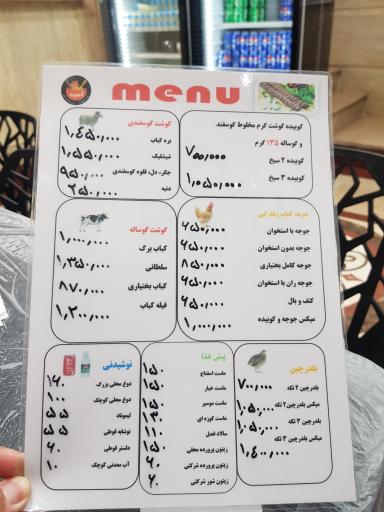 menu
کوبیده گوشت گرم مخلوط گوسفند
و گوساله ۱۳۵ گرم
کوبیده ۲ سیخ ۷۰۰/۰۰۰
کوبیده ۳ سیخ ۱/۰۵۰/۰۰۰
گوشت گوسفندی
بره کباب ۱/۴۵۰/۰۰۰
شیشلیک ۱/۵۵۰/۰۰۰
جگر، دل، قلوه گوسفندی ۹۵۰/۰۰۰
دنبه ۲۵۰/۰۰۰
جوجه کباب زعفرانی
جوجه با استخوان ۶۵۰/۰۰۰
جوجه بدون استخوان ۶۵۰/۰۰۰
جوجه کامل بختیاری ۸۵۰/۰۰۰
جوجه ران با استخوان ۶۵۰/۰۰۰
کتف و بال ۶۵۰/۰۰۰
میکس جوجه و کوبیده ۱/۰۰۰/۰۰۰
گوشت گوساله
کباب برگ ۱/۰۰۰/۰۰۰
سلطانی ۱/۳۵۰/۰۰۰
کباب بختیاری ۸۷۰/۰۰۰
فیله کباب ۱/۲۰۰/۰۰۰
بلدرچین
بلدرچین ۲ تکه ۷۰۰/۰۰۰
میکس بلدرچین ۲ تکه ۱/۰۵۰/۰۰۰
بلدرچین ۳ تکه ۱/۰۵۰/۰۰۰
میکس بلدرچین ۳ تکه ۱/۴۰۰/۰۰۰
پیش غذا
ماست اسفناج ۱۵۰
ماست خیار ۱۵۰
ماست موسیر ۱۵۰
ماست کوزه ای ۱۳۰
سالاد فصل ۱۱۰
زیتون پرورده محلی ۱۵۰
زیتون پرورده شرکتی ۶۰
زیتون شور شرکتی ۶۰
نوشیدنی
دوغ محلی بزرگ ۱۶۰
دوغ محلی کوچک ۱۰۰
لیموناد ۵۵
نوشابه قوطی ۵۵
دلستر قوطی ۶۰
آب معدنی کوچک ۱۰